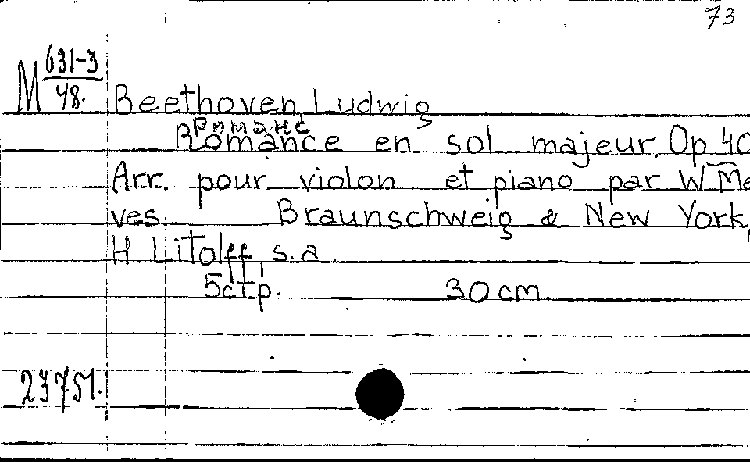 73
M 631-3/48.
Beethoven, Ludwig
Романс
Romance en sol majeur. Op 40
Arr. pour violon et piano par W Me
ves. Braunschweig & New York,
H Litolff, s.a.
5ctp. 30 cm
23751.